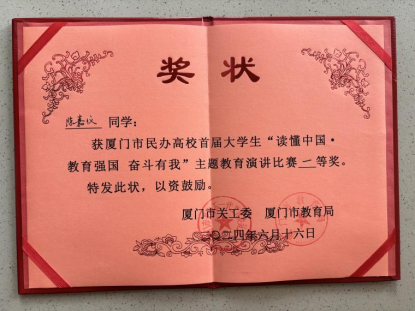 奖状
陈嘉仪 同学：
获厦门市民办高校首届大学生“读懂中国·
教育强国 奋斗有我”主题教育演讲比赛一等奖。
特发此状，以资鼓励。
厦门市关工委 厦门市教育局
二〇二四年六月十六日